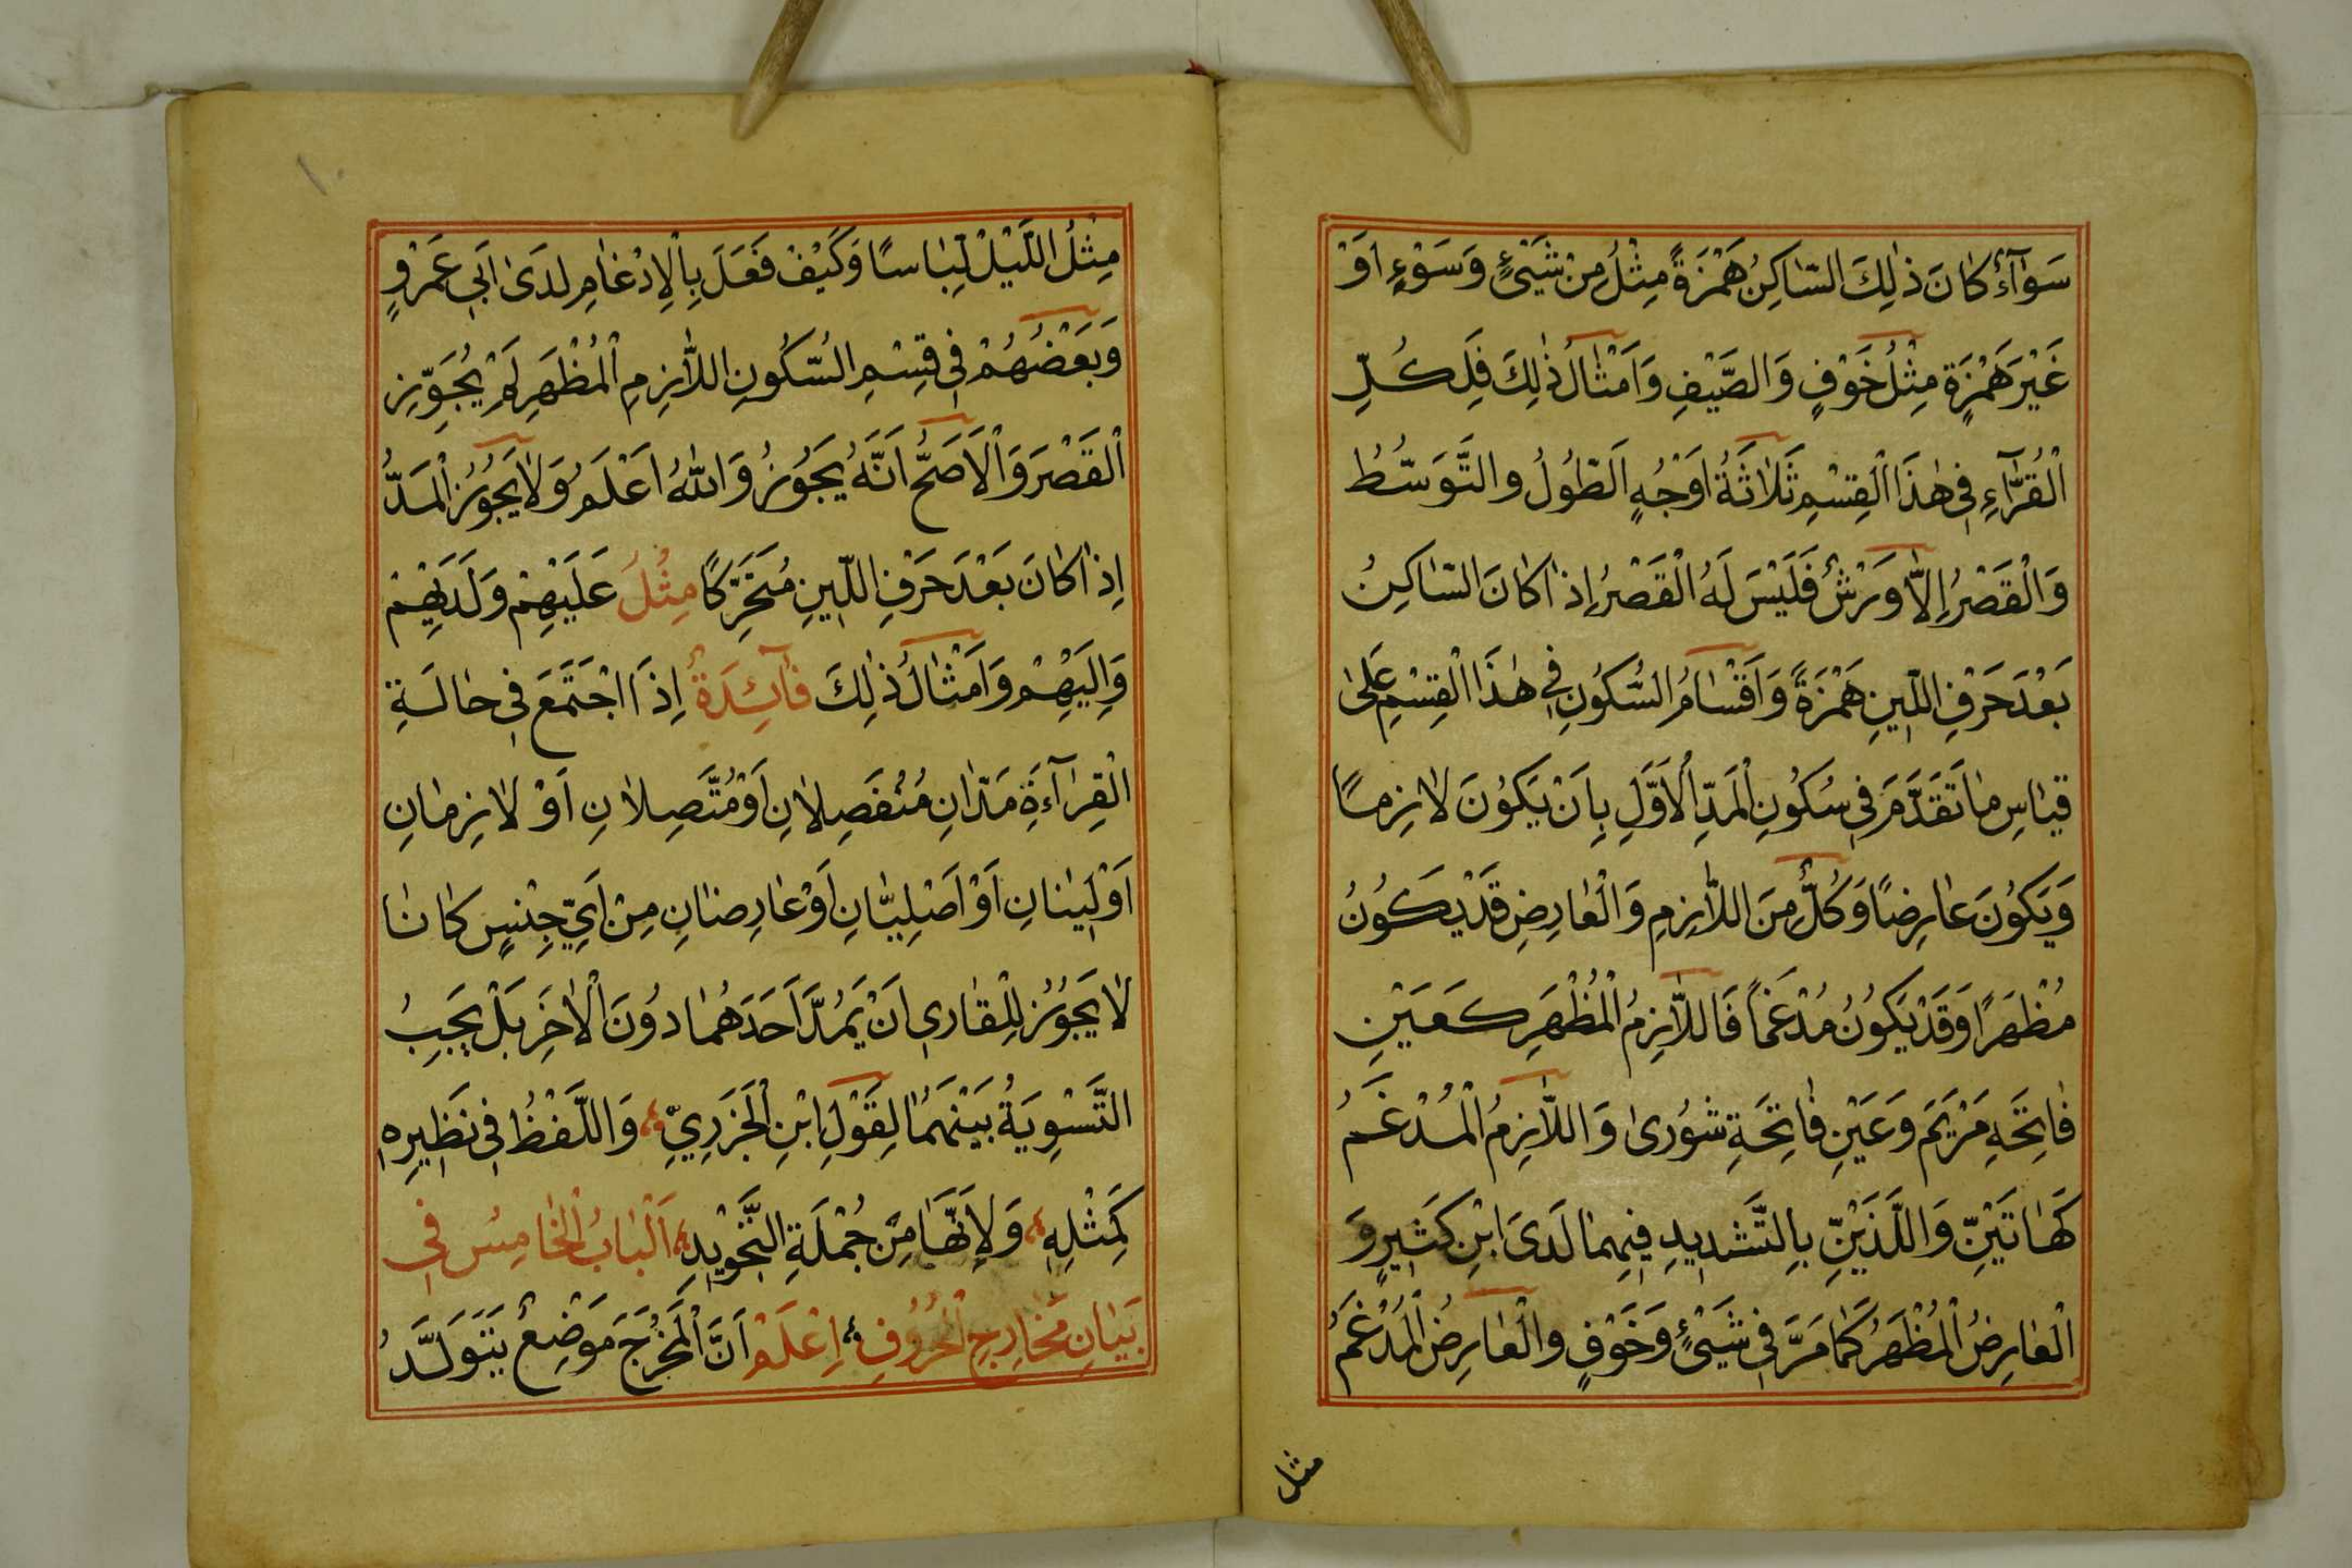 سَوَآءٌ كَانَ ذٰلِكَ السَّاكِنُ هَمْزَةً مِثْلُ مِنْ شَيْئٍ وَسَوْءٍ اَوْ
غَيْرَ هَمْزَةٍ مِثْلُ خَوْفٍ وَالصَّيْفِ وَاَمْثَالُ ذٰلِكَ فَلِكُلِّ
الْقُرَّآءِ فِي هٰذَا الْقِسْمِ ثَلَاثَةُ اَوْجُهٍ اَلطُّولُ والتَّوَسُّطُ
وَالْقَصْرُ اِلَّا وَرْشٌ فَلَيْسَ لَهُ الْقَصْرُ اِذَا كَانَ السَّاكِنُ
بَعْدَ حَرْفِ اللِّينِ هَمْزَةً وَاَقْسَامُ السُّكُونِ فِي هٰذَا الْقِسْمِ عَلَى
قِيَاسِ مَا تَقَدَّمَ فِي سُكُونِ الْمَدِّ الْاَوَّلِ بِاَنْ يَكُونَ لَازِمًا
وَيَكُونَ عَارِضًا وَكُلٌّ مِنَ اللَّازِمِ وَالْعَارِضِ قَدْ يَكُونُ
مُظْهَرًا وَقَدْ يَكُونُ مُدْغَمًا فَاللَّازِمُ الْمُظْهَرِ كَعَيْنِ
فَاتِحَهِ مَرْيَمَ وَعَيْنِ فَاتِحَةِ شُورٰى وَاللَّازِمُ الْمُدْغَمُ
كَهَاتَيْنِّ وَاللَّذَيْنِّ بِالتَّشْدِيدِ فِيهِمَا لَدَى ابْنِ كَثِيرٍ وَ
الْعَارِضُ الْمُظْهَرُ كَمَا مَرَّ فِي شَيْئٍ وَخَوْفٍ والْعَارِضُ الْمُدْغَمُ
مثل
١٠
مِثْلُ اللَّيْلْ لِّبَاسًا وَكَيْفْ فَعَلَ بِالْاِدْغَامِ لَدَى اَبِي عَمْرٍو
وَبَعْضُهُمْ فِي قِسْمِ السُّكُونِ اللَّازِمِ الْمُظْهَرِ لَمْ يُجَوِّزِ
الْقَصْرَ وَالْاَصَحُّ اَنَّهُ يَجُوزُ وَاللّٰهُ اَعْلَمُ وَلَا يَجُوزُ الْمَدُّ
اِذَا كَانَ بَعْدَ حَرْفِ اللِّينِ مُتَحَرِّكًا مِثْلُ عَلَيْهِمْ وَلَدَيْهِمْ
وَاِلَيْهِمْ وَاَمْثَالُ ذٰلِكَ فَآئِدَةٌ اِذَا اجْتَمَعَ فِي حَالَةِ
الْقِرَآءَةِ مَدَّانِ مُنْفَصِلَانِ اَوْ مُتَّصِلَانِ اَوْ لَازِمَانِ
اَوْ لَيِّنَانِ اَوْ اَصْلِيَّانِ اَوْ عَارِضَانِ مِنْ اَيِّ جِنْسٍ كَانَا
لَا يَجُوزُ لِلْقَارِي اَنْ يَمُدَّ اَحَدَهُمَا دُونَ الْاٰخَرِ بَلْ يَجِبُ
التَّسْوِيَةُ بَيْنَهُمَا لِقَوْلِ ابْنِ الْجَزَرِيِّ وَاللَّفْظُ فِي نَظِيرِهِ
كَمِثْلِهِ وَلِاَنَّهَا مِنْ جُمْلَةِ التَّجْوِيْدِ اَلْبَابُ الْخَامِسُ فِي
بَيَانِ مَخَارِجِ الْحُرُوفِ اِعْلَمْ اَنَّ الْمَخْرَجَ مَوْضِعٌ يَتَوَلَّدُ